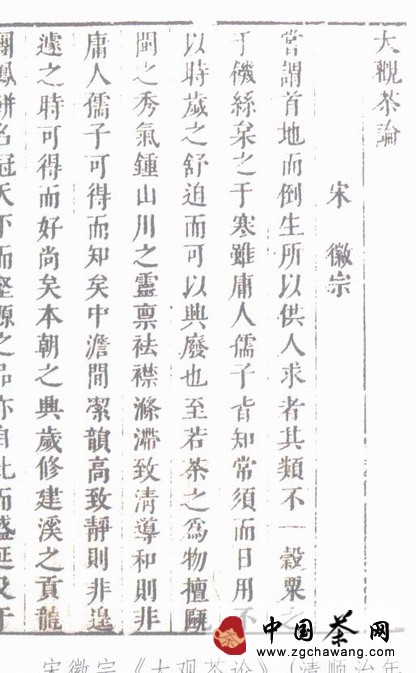 大觀茶論
宋 徽宗
嘗謂首地而倒生所以供人求者其類不一榖粟之
于饑絲枲之于寒雖庸人儒子皆知常須而日用不
以時歲之舒迫而可以興廢也至若茶之爲物擅甌
閩之秀氣鍾山川之靈禀袪襟滌滯致清導和則非
庸人儒子可得而知矣中澹間潔韻高致靜則非遑
遽之時可得而好尚矣本朝之興歲修建溪之貢龍
團鳳餅名冠天下而壑源之品亦自此而盛延及于
中国茶网
www.zgchawang.com
宋徽宗《大观茶论》(清顺治年